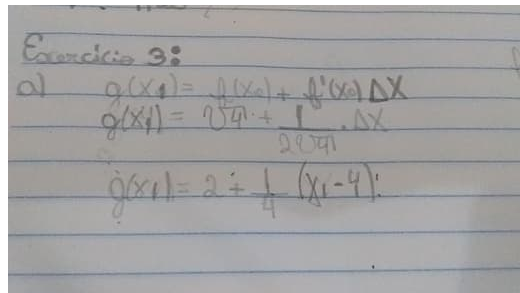 Exercício 3:
a) g(x1) = f(x0) + f'(x0) ΔX
g(x1) = √4 + 1/(2√4) . ΔX
g(x1) = 2 + 1/4 (x1 - 4).